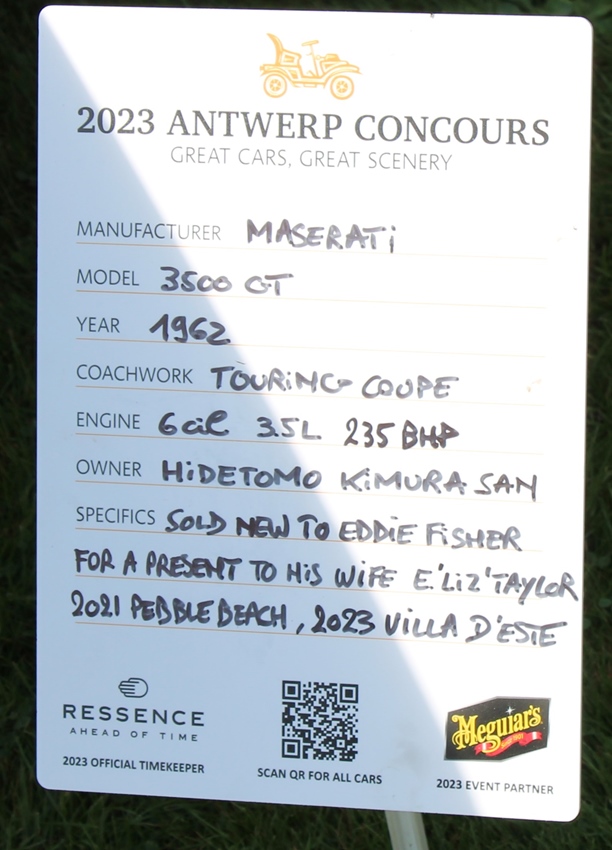 2023 ANTWERP CONCOURS
GREAT CARS, GREAT SCENERY
MANUFACTURER MASERATi
MODEL 3500 GT
YEAR 1962
COACHWORK TOURiNG COUPE
ENGINE 6 cil 3.5L 235 BHP
OWNER HiDETOMO KiMURA SAN
SPECIFICS SOLD NEW TO EDDiE FiSHER
FOR A PRESENT TO HiS WiFE E'LiZ'TAYLOR
2021 PEBBLE BEACH, 2023 ViLLA D'ESTE
RESSENCE
AHEAD OF TIME
2023 OFFICIAL TIMEKEEPER
SCAN QR FOR ALL CARS
Meguiar's
2023 EVENT PARTNER